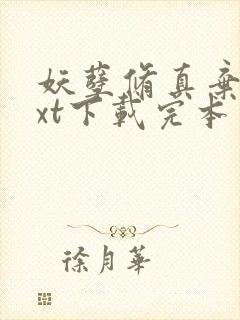 妖孽脩真棄
xt下載完本
徐月華